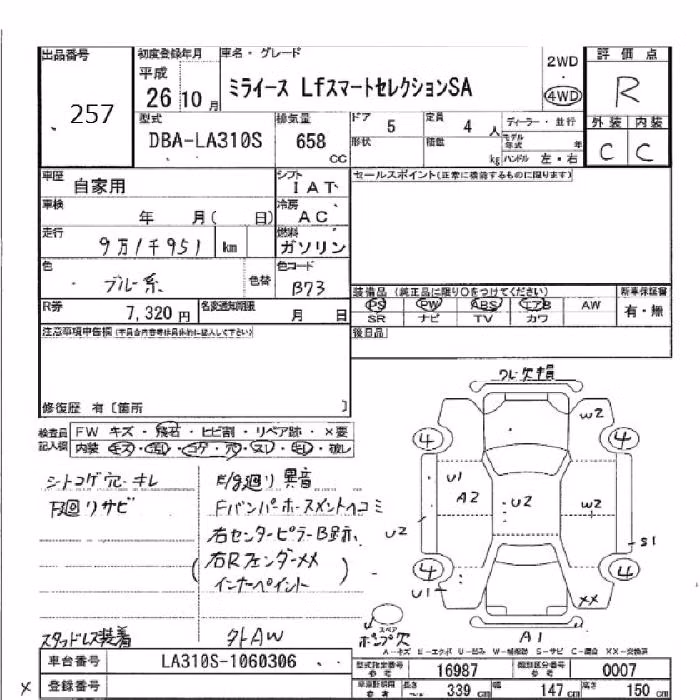 出品番号
257
初度登録年月
平成
26 10 月
車名・グレード
ミライース LfスマートセレクションSA
2WD
・
4WD
評価点
R
外装 内装
C C
型式
DBA-LA310S
排気量
658
CC
ドア 5
定員 4 人
形状
積数 kg
ディーラー・並行
モデル年式 年
ハンドル 左・右
車歴 自家用
シフト
IAT
セールスポイント(正常に機能するものに限ります)
車検 年 月( 日)
冷房
AC
走行 9万1千951 km
燃料
ガソリン
色 ブルー系 色替
色コード
B73
装備品 (純正品に限り○をつけてください)
PS PW ABS エアB AW
SR ナビ TV カワ
新車保証書
有・無
R券 7,320 円
名変通知期限 月 日
後日品
注意事項申告欄(不具合内容等は具体的に記入して下さい)
修復歴 有〔箇所 〕
検査員記入欄
FW キズ・飛石・ヒビ割・リペア跡・×要
内装 キズ・汚レ・コゲ・穴・スレ・毛レ・破レ
シートコゲ穴・キレ
下廻りサビ
スタッドレス装着
F/g廻り異音
Fバンパーホースメントヘコミ
右センターピラーB顕示、
(右Rフェンダー××
インナーペイント)
外AW
フレー欠損
4
4
4
4
W2
U1
A2
U2
W2
U2
S1
U1
××
A1
スペア
ポンプ欠
A-キズ E-エクボ U-凹み W-補修跡 S-サビ C-腐蝕 XX-交換済
車台番号 LA310S-1060306
登録番号
×
型式指定番号
参考
16987
類別区分番号
参考
0007
車両計測用
参考
長さ 339 cm
幅 147 cm
高さ 150 cm